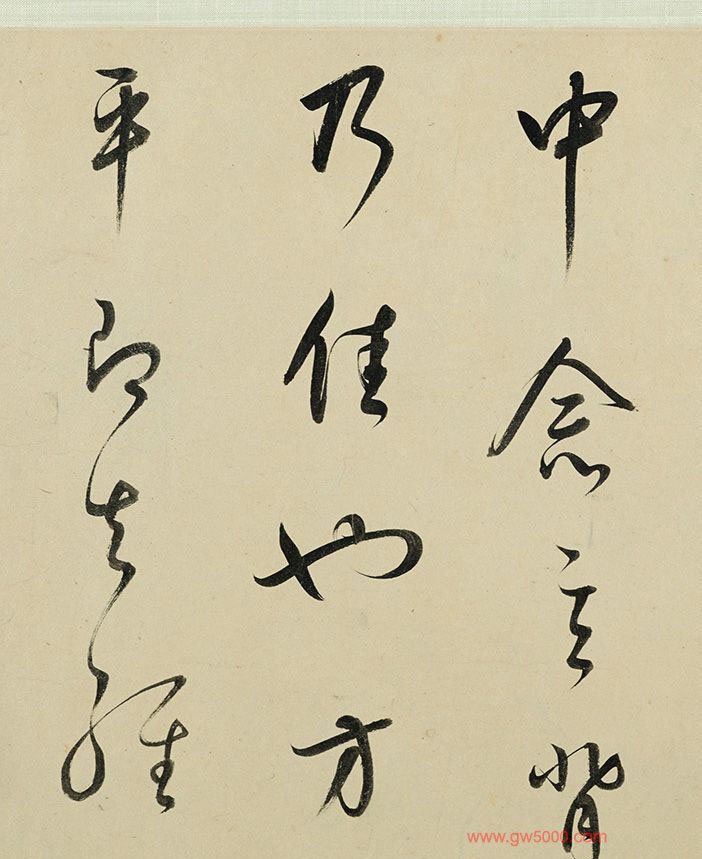 中念言背
乃佳也方
平即知經
www.gw5000.com